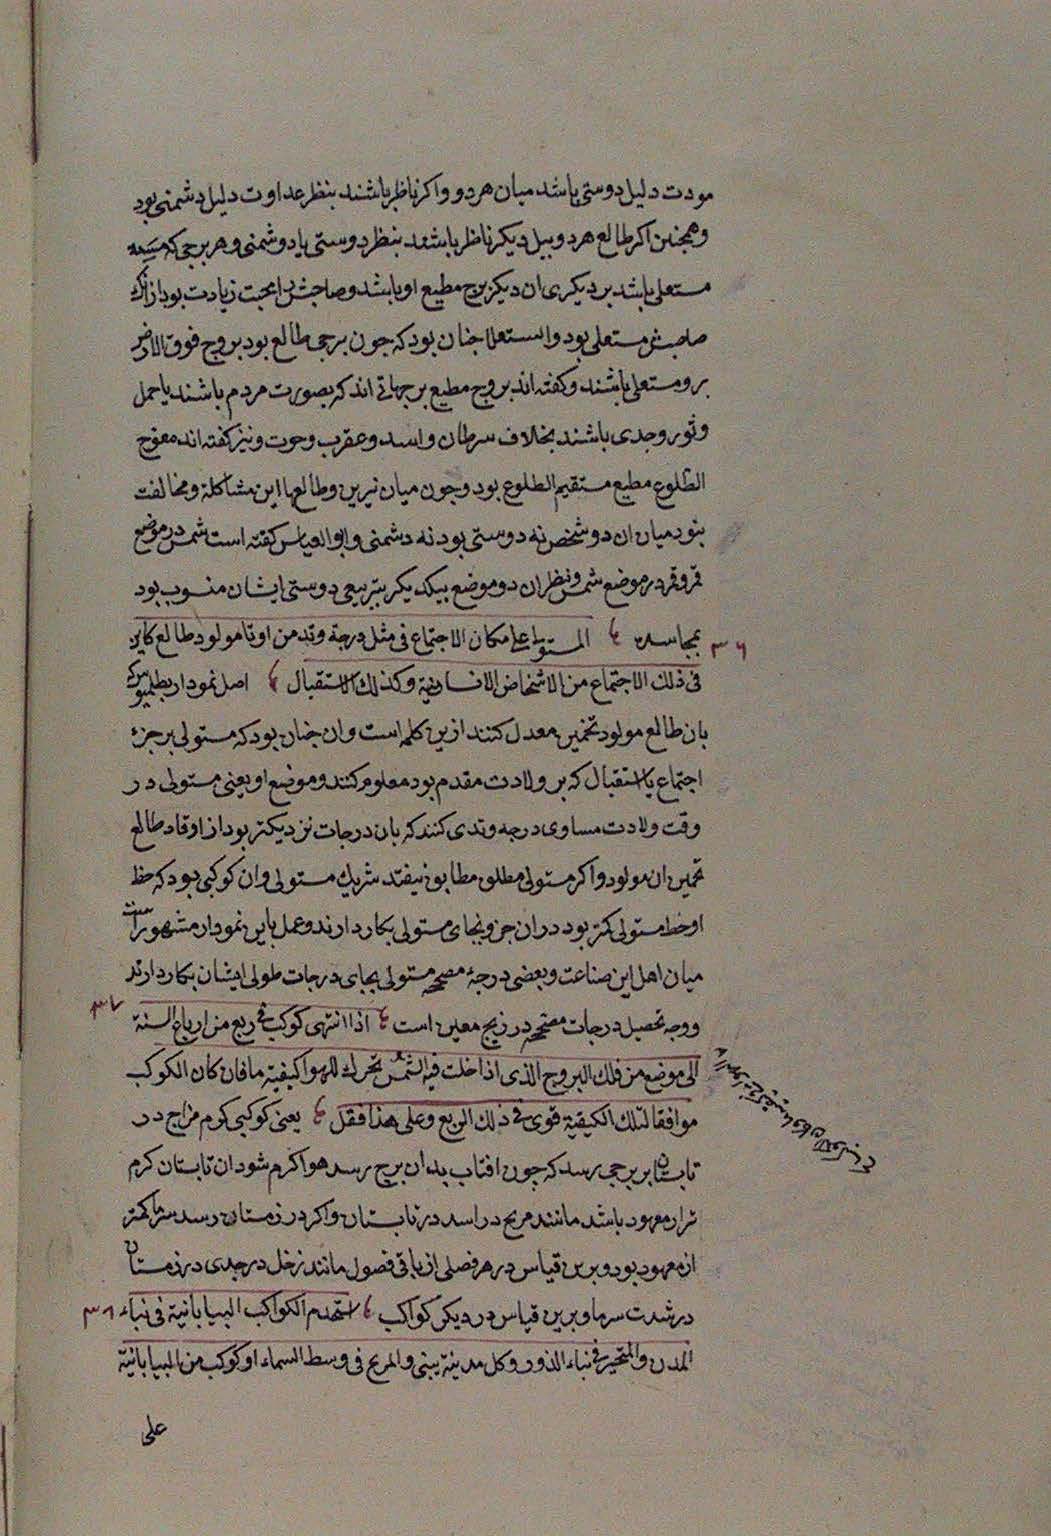 مودت دلیل دوستی باشد میان هر دو و اکر ناظر باشند بنظر عداوت دلیل دشمنی بود
و همجنین اکر طالع هر دو بیل دیکر ناظر باشند بنظر دوستی یا دوشمنی و هر برجی که
مستعلی باشد بر دیکری ان دیکر برج مطیع او باشد و صاحبش را محبت زیادت بود از انک
صاحبش مستعلی بود و استعلا جنان بود که جون برجی طالع بود بروج فوق الارض
برو مستعلی باشند و کفته اند بروج مطیع برجهائی اند که بصورت مردم باشند یا حمل
و ثور و جدی باشند بخلاف سرطان و اسد و عقرب و حوت و نیز کفته اند معوج
الطلوع مطیع مستقیم الطلوع بود و جون میان نیرین و طالعها این مشاکله و مخالفت
بنود میان ان دو شخص نه دوستی بود نه دشمنی و ابو العباس کفته است شمس در موضع
قمر و قمر در موضع شمس و نظر ان دو موضع بیکدیکر بتربیعی دوستی ایشان منسوب بود
بمجاسده المستولی علی مکان الاجتماع فی مثل درجة وتد من اوتاد مولود طالع کاین ٣٦
فی ذلک الاجتماع من الاشخاص الانسانیة و کذلک الاستقبال اصل نمودار بطلمیوس که
بان طالع مولود تخمین معدل کنند ازین کلمه است و ان جنان بود که مستولی بر جزء
اجتماع یا استقبال که بر ولادت مقدم بود معلوم کنند و موضع او یعنی مستولی در
وقت ولادت مساوی درجه وتدی کنند که بان درجات نزدیکتر بود از اوتاد طالع
تخمین ان مولود و اکر مستولی مطلق مطابق نیفتد شریک مستولی و ان کوکبی بود که حظ
او حظ مستولی کمتر بود دران جزو بجای مستولی بکار دارند و عمل باین نمودار مشهورست
میان اهل این صناعت و بعضی درجهٔ مصححه مستولی بجای درجات طولی ایشان بکار دارند
و وجه تحصیل درجات مصححه در زیج معین است اذا انتهی کوکب فی ربع من ارباع السنة ٣٧
الی موضع من فلک البروج الذی اذا حلت فیه الشمس تحرک للهوا کیفیة ما فان کان الکوکب
موافقا لتلک الکیفیة قوی فی ذلک الربع و علی هذا فقل یعنی کوکبی کرم مزاج در
تابستان بر برجی رسد که جون افتاب بدان برج رسد هوا کرم شود ان تابستان کرم
تر از معهود باشد مانند مریخ در اسد در تابستان و اکر در زمستان رسد سرما کمتر
از معهود بود و برین قیاس در هر فصلی از باقی فصول مانند زحل در جدی در زمستان
در شدت سرما و برین قیاس در دیکر کواکب استخدم الکواکب البیابانیة فی بناء ٣٨
المدن و المتحیرة فی بناء الدور و کل مدینة یبنی و المریخ فی وسط السماء او کوکب من البیابانیة
علی